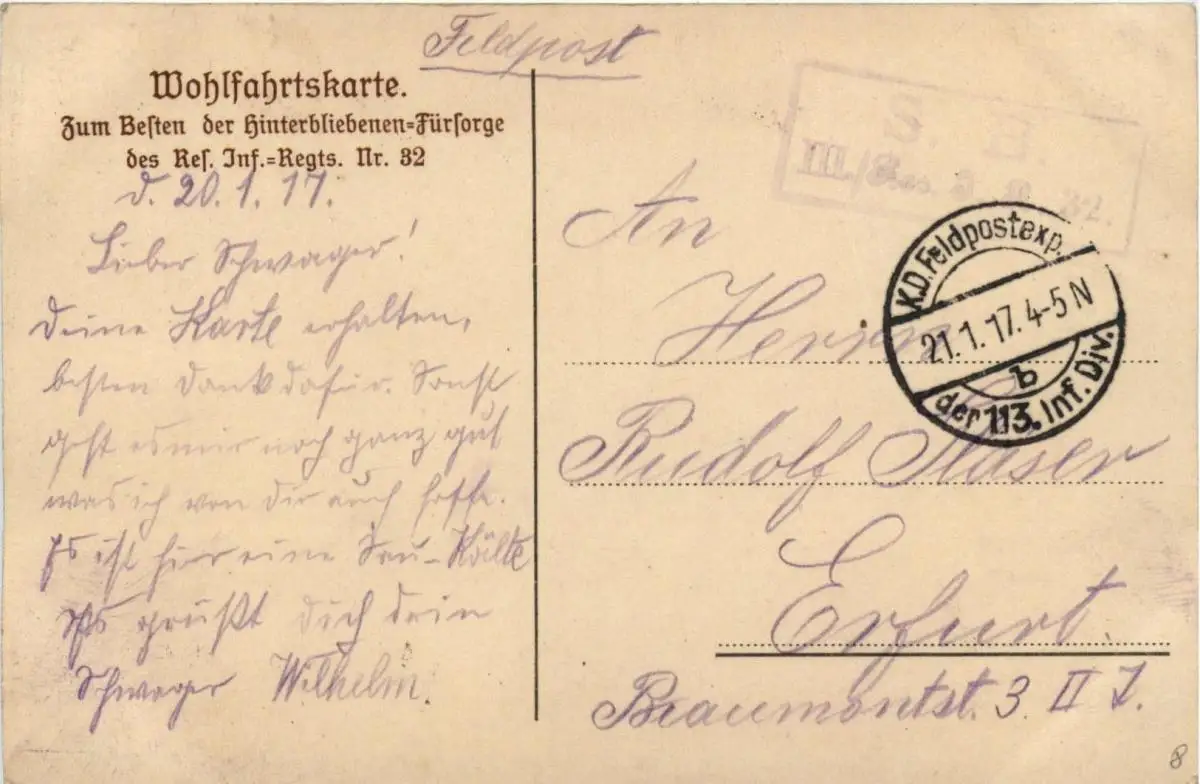 Feldpost
Wohlfahrtskarte.
Zum Besten der Hinterbliebenen=Fürsorge
des Res. Inf.=Regts. Nr. 32
d. 20.1.17.
Lieber Schwager!
Deine Karte erhalten,
besten Dank dafür. Sonst
geht es mir noch ganz gut
was ich von Dir auch hoffe.
Es ist hier eine Sau-Kälte
Es grüßt Dich dein
Schwager Wilhelm.
S. B.
III./Res. 32.
K.D. Feldpostexp.
21.1.17.4-5N
b
der 113. Inf. Div.
An
Herrn
Rudolf
Erfurt.
3 II
8